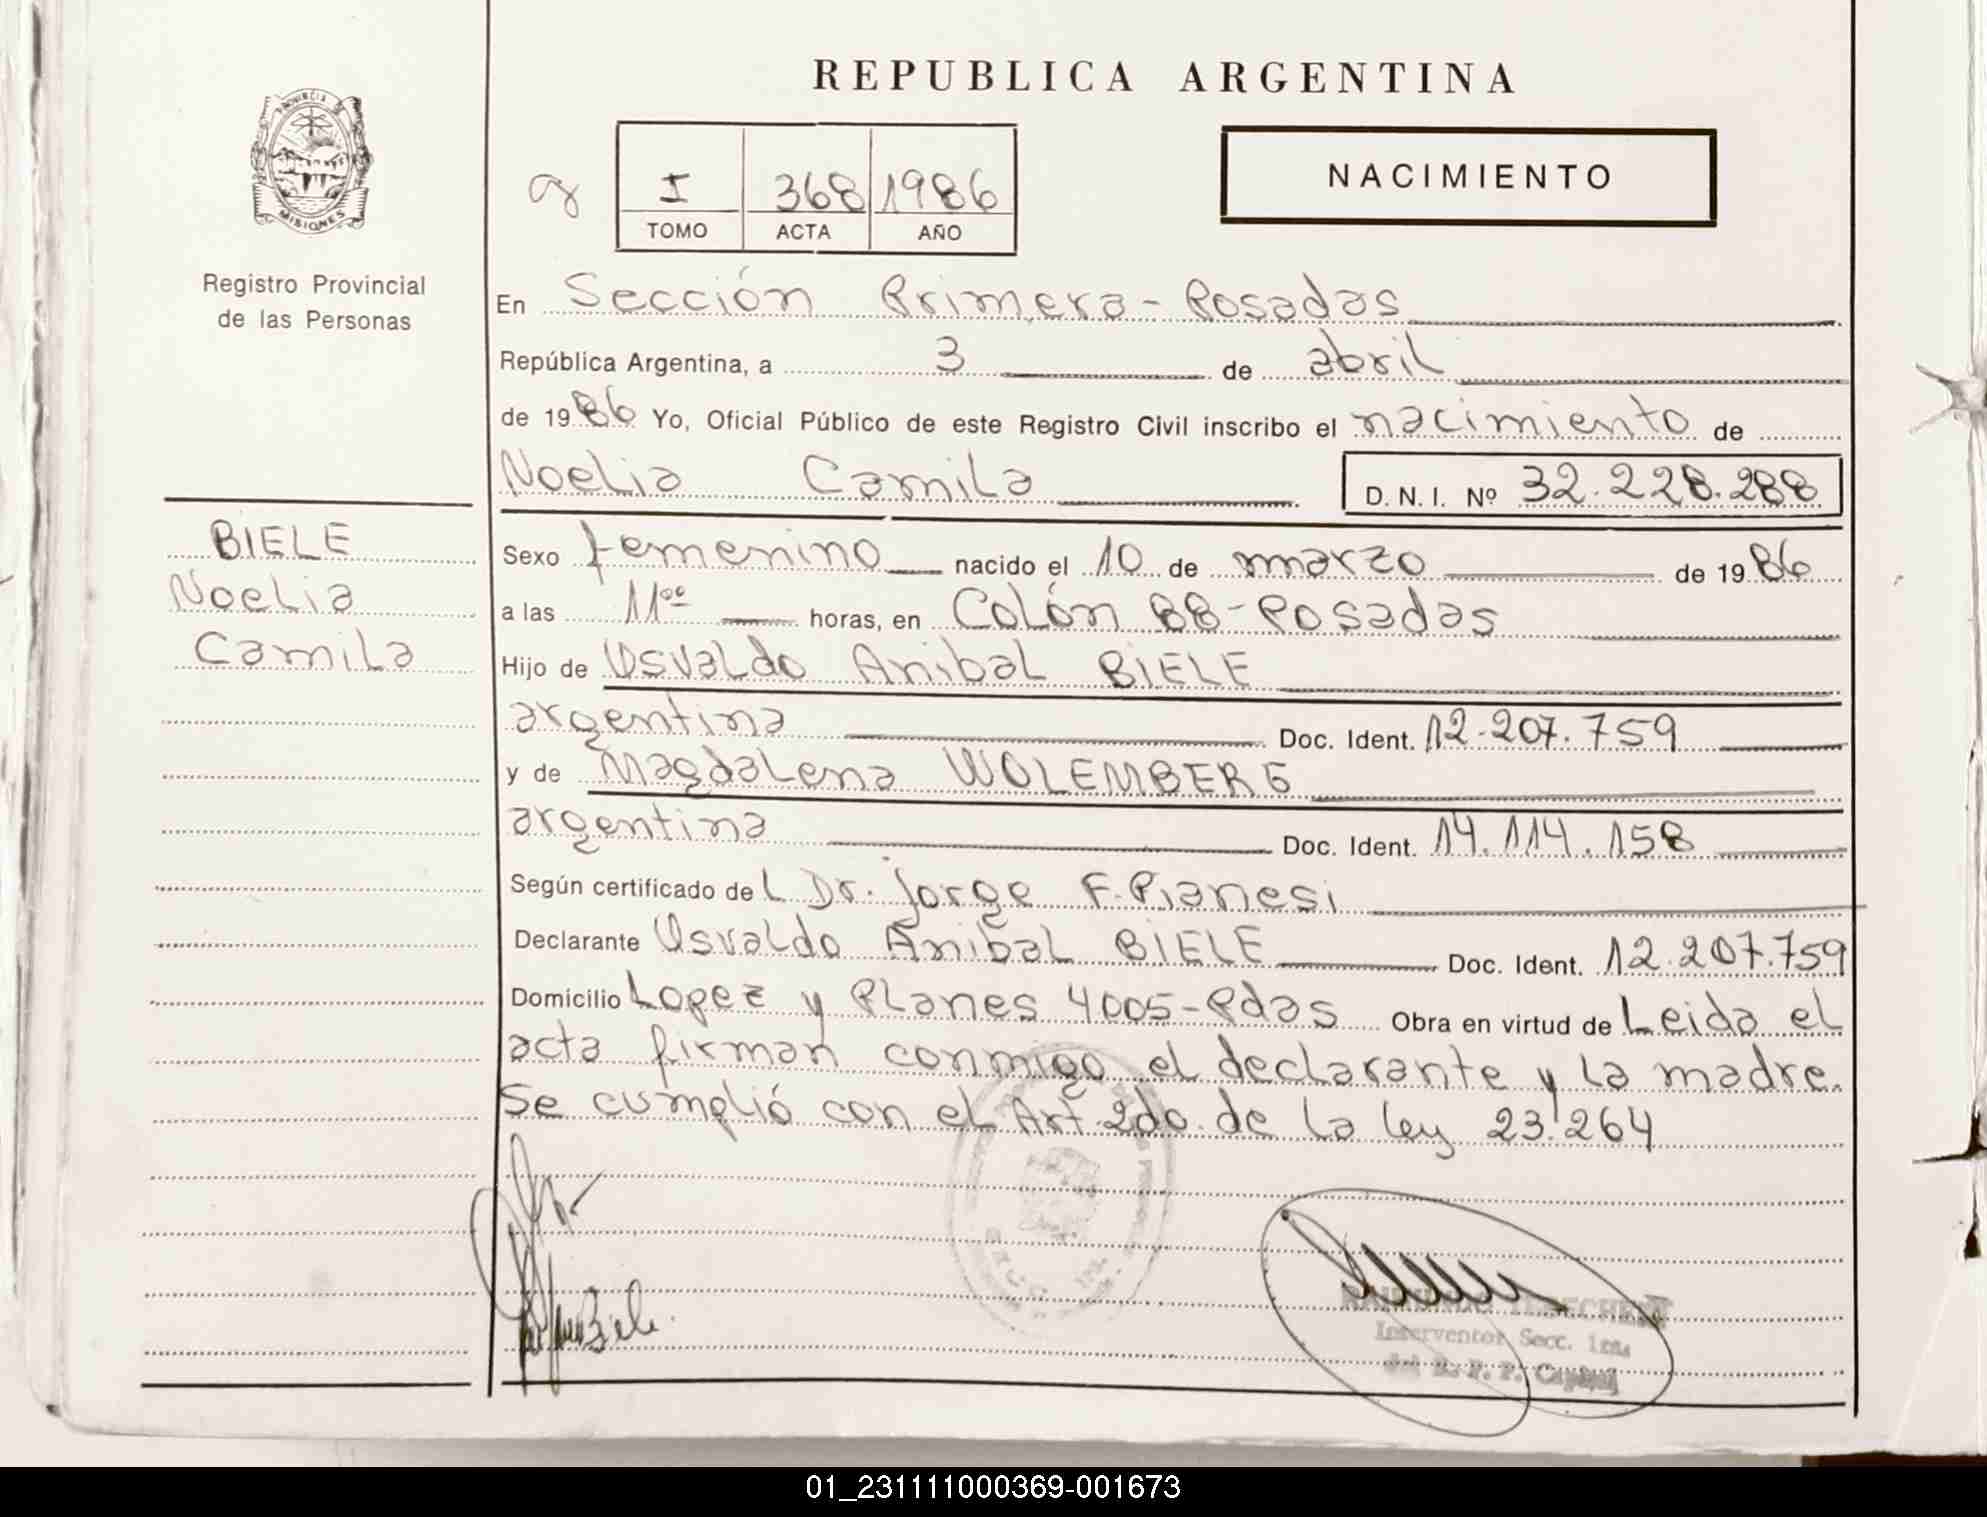 REPUBLICA ARGENTINA
PROVINCIA DE
MISIONES
I 368 1986
TOMO ACTA AÑO
NACIMIENTO
Registro Provincial
de las Personas
En Sección Primera - Posadas
República Argentina, a 3 de abril
de 1986 Yo, Oficial Público de este Registro Civil inscribo el nacimiento de
Noelia Camila D. N. I. Nº 32.228.288
BIELE
Noelia
Camila
Sexo femenino nacido el 10 de marzo de 1986
a las 11⁰⁰ horas, en Colón 88 - Posadas
Hijo de Osvaldo Anibal BIELE
argentina Doc. Ident. 12.207.759
y de Magdalena WOLEMBERG
argentina Doc. Ident. 14.114.158
Según certificado de L Dr. Jorge F. Pianesi
Declarante Osvaldo Anibal BIELE Doc. Ident. 12.207.759
Domicilio Lopez y Planes 4005 - Pdas Obra en virtud de Leida el
acta firman conmigo el declarante y la madre.
Se cumplió con el Art. 2do. de la ley 23.264
Biele
Interventor Secc. 1ra.
del R. P. P. Capital
01_231111000369-001673